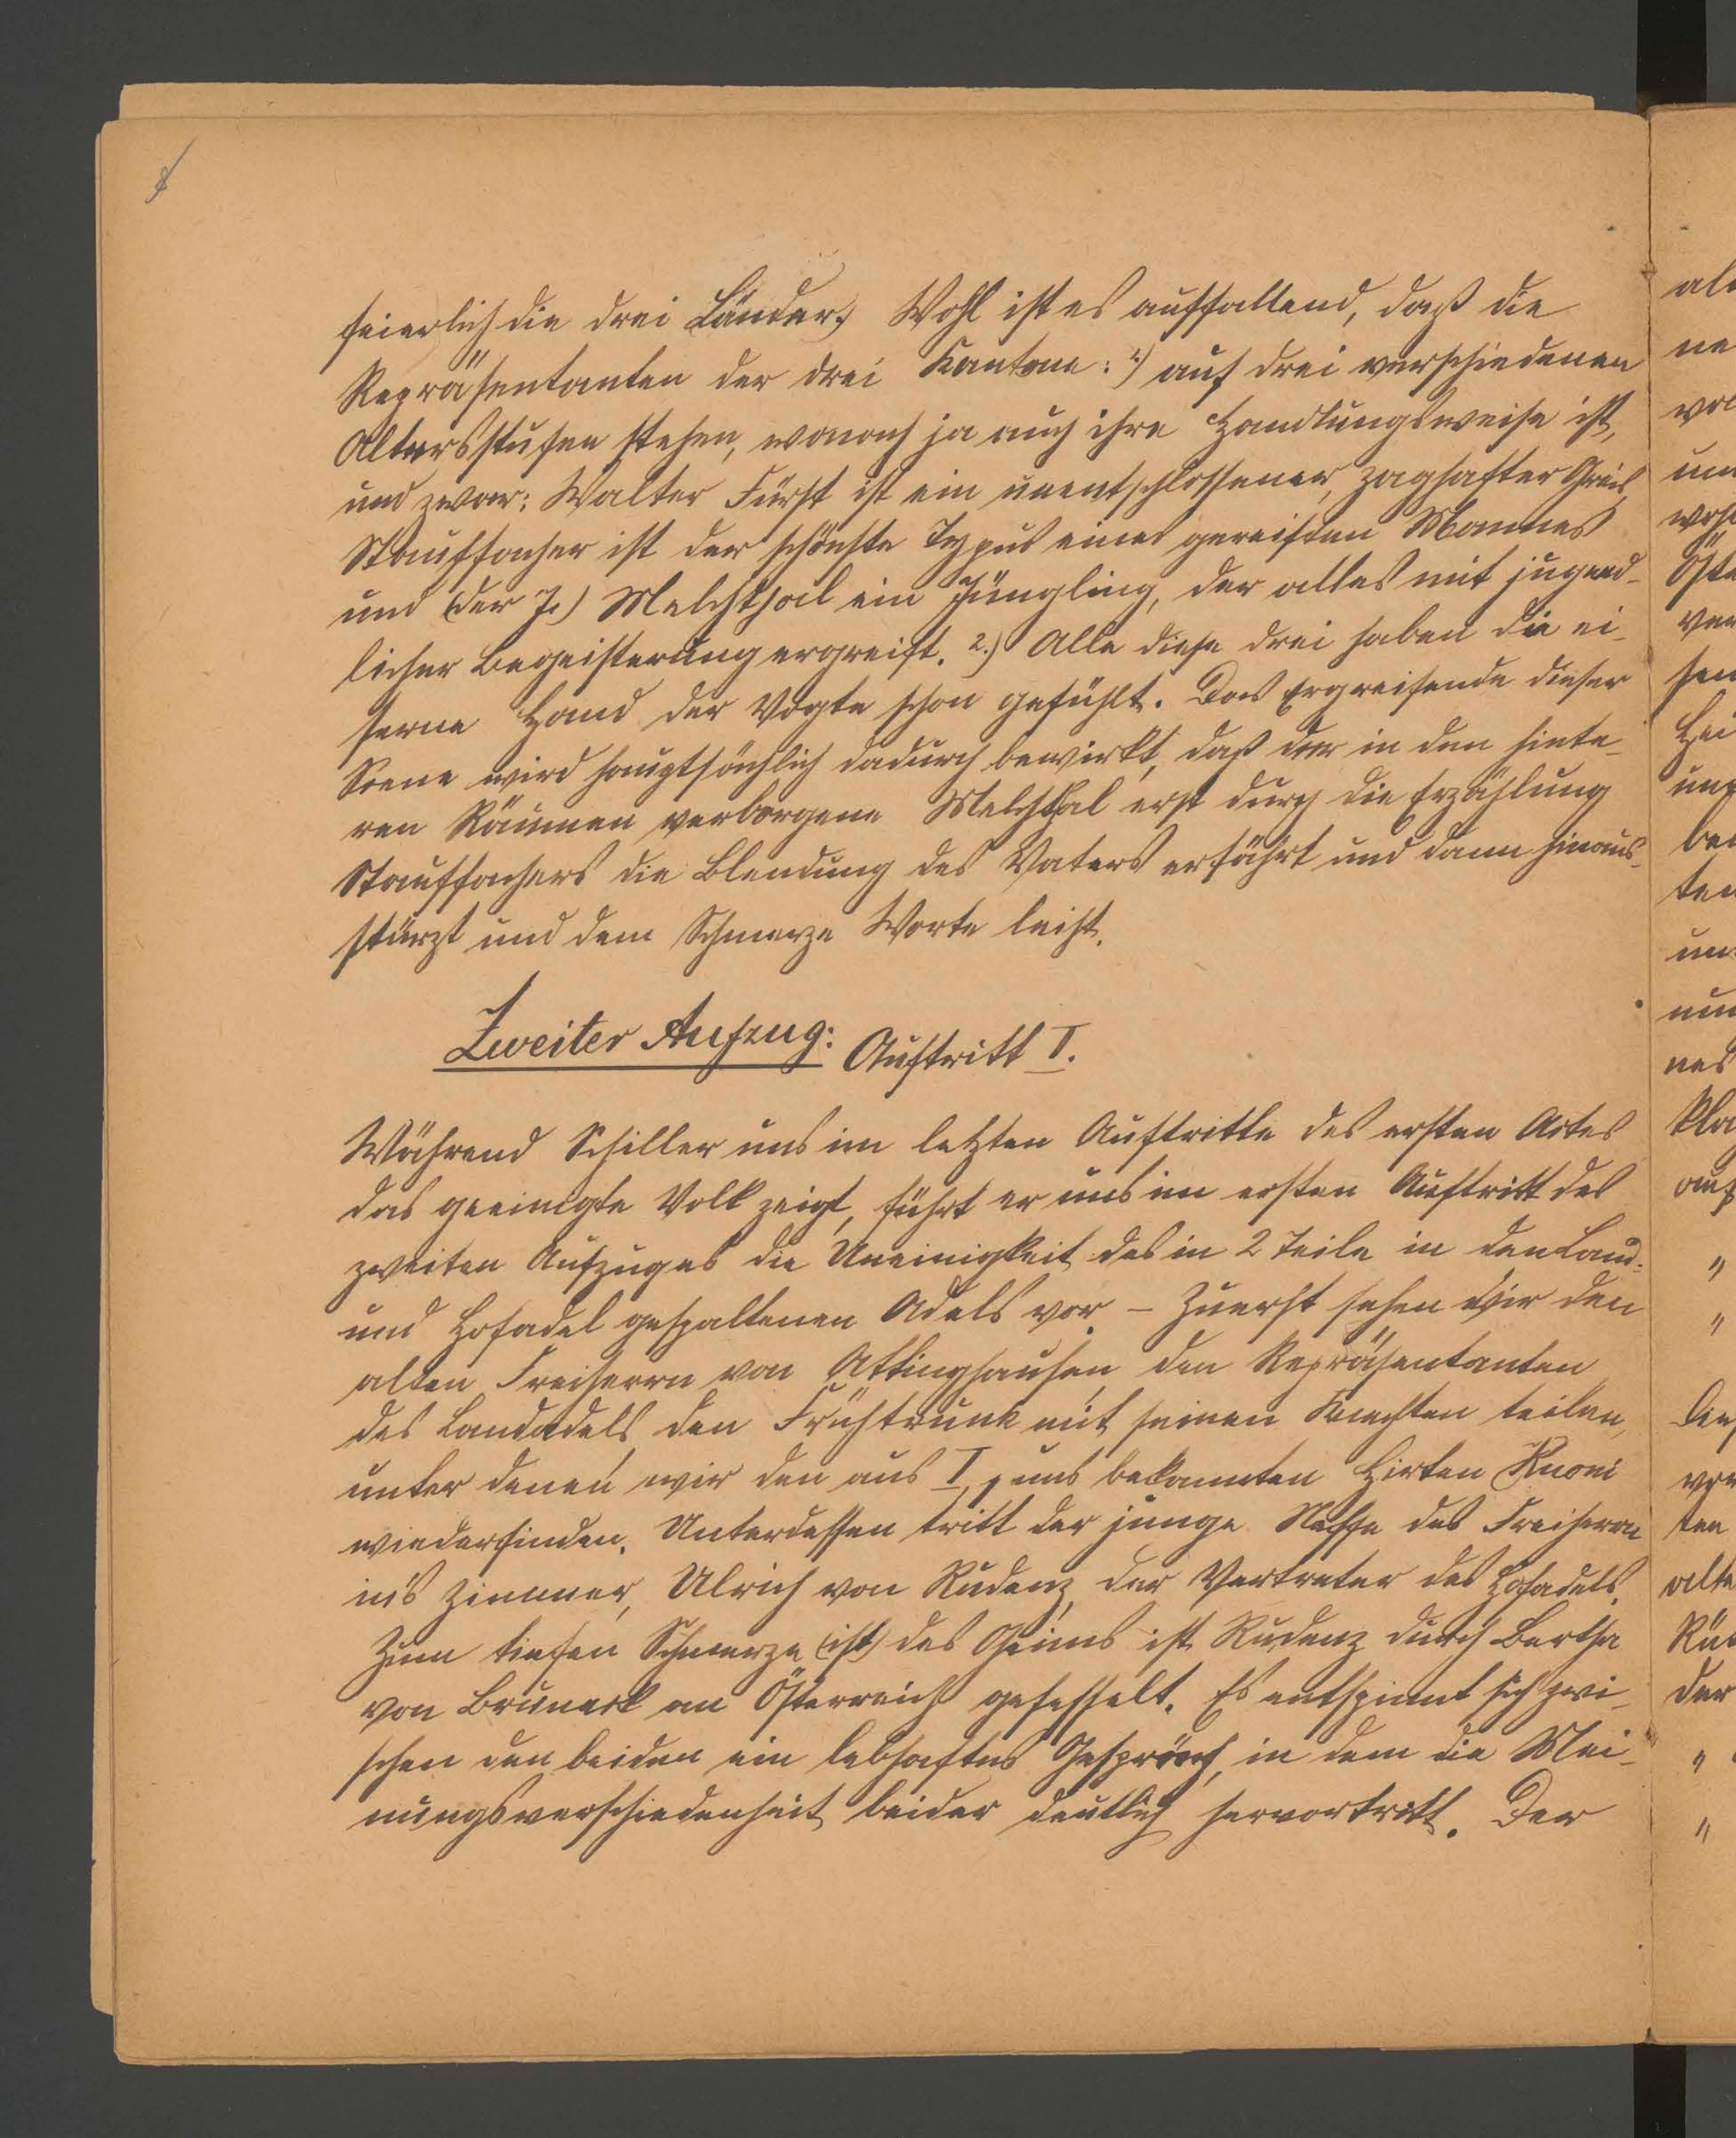 feierlich die drei Länder.) Wohl ist es auffallend, daß die
Repräsentanten der drei Kantone: 1.) auf drei verschiedenen
Altersstufen stehen, wonach ja auch ihre Handlungsweise ist,
und zwar: Walter Fürst ist ein unentschlossener, zaghafter Greis,
Stauffacher ist der schönste Typus eines gereiften Mannes
und (der J.) Melchthal ein Jüngling, der alles mit jugend-
licher Begeisterung ergreift. 2.) Alle diese drei haben die ei-
serne Hand der Vögte schon gefühlt. Das Ergreifende dieser
Scene wird hauptsächlich dadurch bewirkt, daß der in den hinte-
ren Räumen verborgene Melchthal erst durch die Erzählung
Stauffachers die Blendung des Vaters erfährt und dann hinaus-
stürzt und dem Schmerze Worte leiht.
Zweiter Aufzug: Auftritt I.
Während Schiller uns im letzten Auftritte des ersten Actes
das geeinigte Volk zeigt, führt er uns im ersten Auftritt des
zweiten Aufzuges die Uneinigkeit des in 2 Teile in den Land-
und Hofadel gespaltenen Adels vor. – Zuerst sehen wir den
alten Freiherrn von Attinghausen, den Repräsentanten
des Landadels, den Frühtrunk mit seinen Knechten teilen,
unter denen wir den aus I, uns bekannten Hirten Kuoni
wiederfinden. Unterdessen tritt der junge Neffe des Freiherrn
in's Zimmer, Ulrich von Rudenz, der Vertreter des Hofadels.
Zum tiefen Schmerze (ist) des Oheims ist Rudenz durch Bertha
von Bruneck an Österreich gefesselt. Es entspinnt sich zwi-
schen den beiden ein lebhaftes Gespräch, in dem die Mei-
nungsverschiedenheit beider deutlich hervortritt. Der